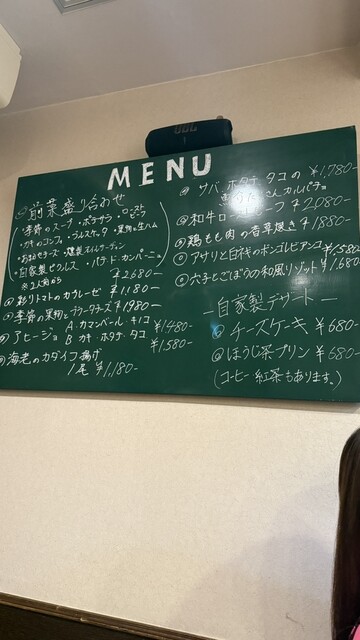 JBL
MENU
◎前菜盛り合わせ
・季節のスープ・ポテサラ・ローストビーフ
・カキのコンフィ・ブルスケッタ・果物と生ハム
・自家製ピクルス・パテドカンパーニュ
※2人前から ¥2,680-
◎彩りトマトのカプレーゼ ¥1,180-
◎季節の果物とブラータチーズ ¥1980-
◎アヒージョ A カマンベール キノコ ¥1480-
B カキ・ホタテ・タコ ¥1,580-
◎海老のカダイフ揚げ
1尾 ¥1,180-
◎サバ、ホタテ、タコの ¥1,780-
カルパチョ
◎和牛ローストビーフ ¥2,080-
◎鶏もも肉の香草焼き ¥1880-
◎アサリと白きすのボンゴレビアンコ ¥1,580-
◎穴子とごぼうの和風リゾット ¥1,680-
—自家製デザート—
◎チーズケーキ ¥680-
◎ほうじ茶プリン ¥680-
(コーヒー 紅茶もあります。)